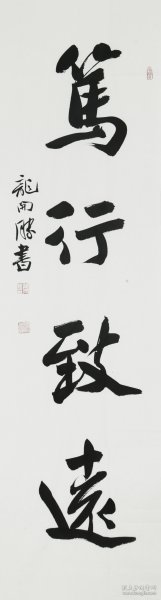 篤行致遠
龍開勝書